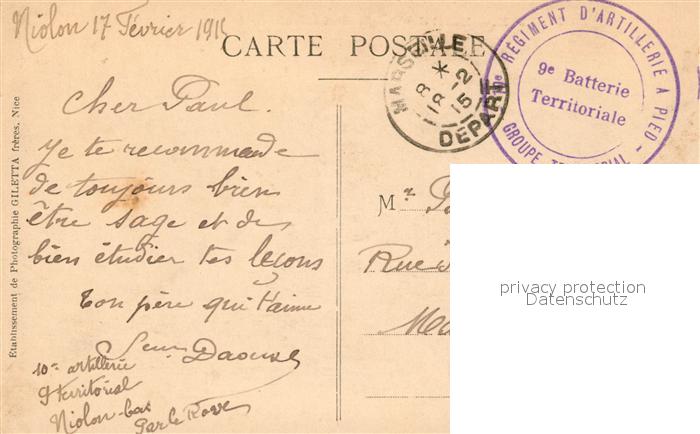 Niolon 17 Février 191
CARTE POSTALE
MARSEILLE
18 *
15-2
DÉPART
REGIMENT D'ARTILLERIE A PIED
9e Batterie
Territoriale
GROUPE
Cher Paul.
Je te recommande
de toujours bien
être sage et de
bien étudier tes leçons
Ton père qui t'aime
Daouse
10me artillerie
9 territorial
Niolon-bas
Par le Rove
Mr
Rue
Établissement de Photographie GILETTA frères, Nice
privacy protection
Datenschutz